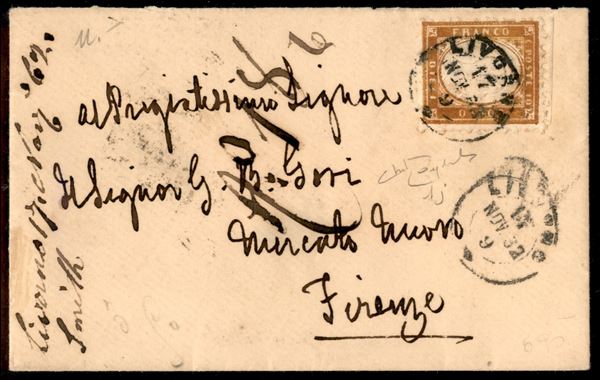 FRANCO
BOLLO
LIVORNO
17
NOV
9
Al Pregiatissimo Signore
Il Signor G. B. Gori
Mercato Nuovo
Firenze
LIVORNO
17
NOV 62
9
Livorno 17 Nov. 62.
Smith